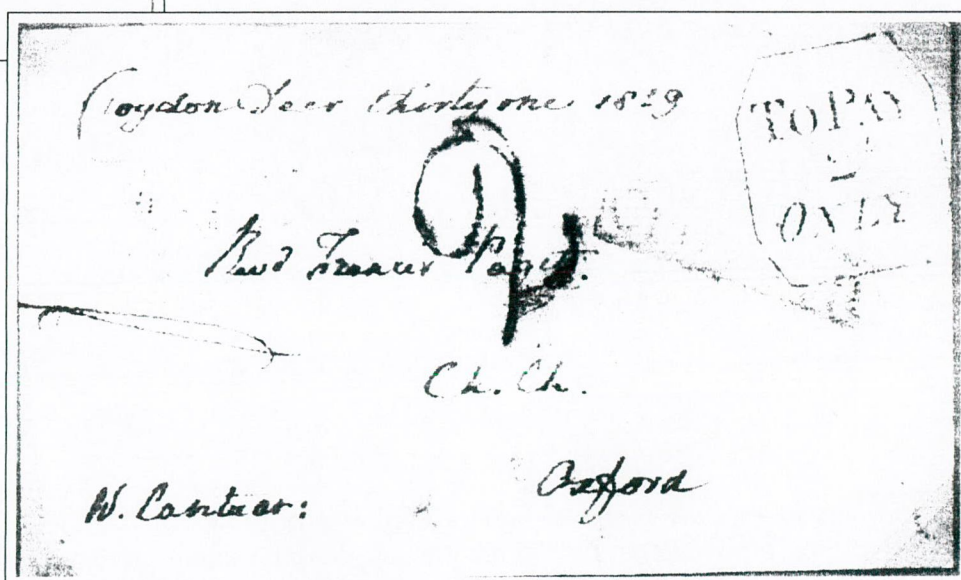 Croydon Decr thirty one 1829
TO PAY
2
ONLY
2
Revd Francis Paget.
Ch. Ch.
Oxford
W. Cantuar: